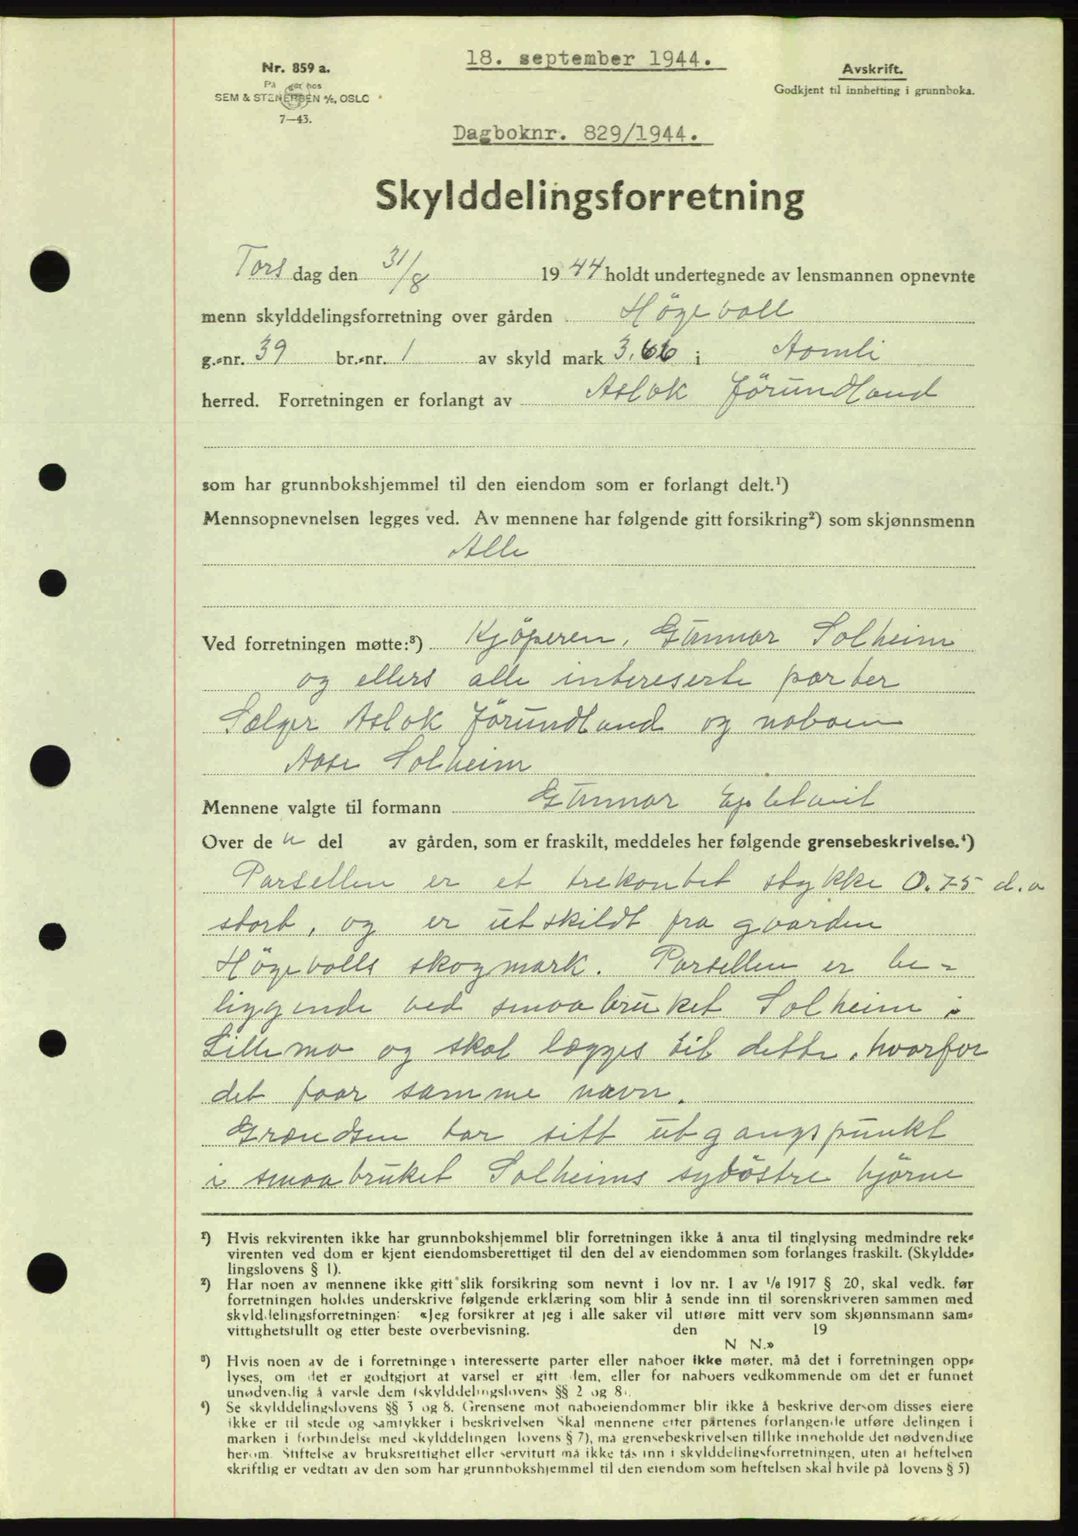 18. september 1944.
Nr. 859 a.
På hos
SEM & STENERSEN A/S, OSLO
7—43.
Avskrift.
Godkjent til innhefting i grunnboka.
Dagboknr. 829/1944.
Skylddelingsforretning
Tors dag den 31/8 1944 holdt undertegnede av lensmannen opnevnte
menn skylddelingsforretning over gården Högevoll
g.-nr. 39 br.-nr. 1 av skyld mark 3,66 i Aamli
herred. Forretningen er forlangt av Aslak Jörundland
som har grunnbokshjemmel til den eiendom som er forlangt delt.¹)
Mennsopnevnelsen legges ved. Av mennene har følgende gitt forsikring²) som skjønnsmenn
Alle
Ved forretningen møtte:³) Kjöperen, Gunnar Solheim
og ellers alle intereserte parter
Sælger Aslak Jörundland og naboen
Aase Solheim
Mennene valgte til formann Gunnar
Over de n del av gården, som er fraskilt, meddeles her følgende grensebeskrivelse.⁴)
Parsellen er et trekantet stykke 0.75 d.a
stort, og er utskildt fra gaarden
Högevolls skogmark. Parsellen er be-
liggende ved smaabruket Solheim i
Lillemo og skal lægges til dette, hvorfor
det faar samme navn.
Grændsen tar sitt utgangspunkt
i smaabruket Solheims sydöstre hjörne
¹) Hvis rekvirenten ikke har grunnbokshjemmel blir forretningen ikke å anta til tinglysing medmindre rek-
virenten ved dom er kjent eiendomsberettiget til den del av eiendommen som forlanges fraskilt. (Skyldde-
lingslovens § 1).
²) Har noen av mennene ikke gitt slik forsikring som nevnt i lov nr. 1 av 1/6 1917 § 20, skal vedk. før
forretningen holdes underskrive følgende erklæring som blir å sende inn til sorenskriveren sammen med
skylddelingsforretningen: «Jeg forsikrer at jeg i alle saker vil utføre mitt verv som skjønnsmann sam-
vittighetsfullt og etter beste overbevisning. den 19
N N.»
³) Hvis noen av de i forretningen interesserte parter eller naboer ikke møter, må det i forretningen opp-
lyses, om det er godtgjort at varsel er gitt dem, eller for naboers vedkommende om det er funnet
unødvendig å varsle dem (skylddelingslovens §§ 2 og 8).
⁴) Se skylddelingslovens §§ 3 og 8. Grensene mot naboeiendommer blir ikke å beskrive dersom disses eiere
ikke er til stede og samtykker i beskrivelsen Skal mennene etter partenes forlangende utføre delingen i
marken i forbindelse med skylddelingen lovens § 7), må grensebeskrivelsen tillike inneholde det nødvendige
herom. Stiftelse av bruksrettighet eller servitutt må ikke tas inn i skylddelingsforretningen, uten at heftelsen
skriftlig er vedtatt av den som har grunnbokshjemmel til den eiendom som heftelsen skal hvile på lovens § 5)